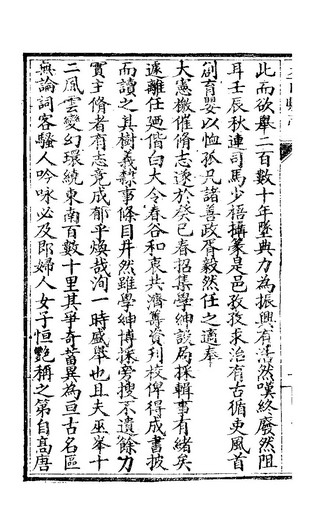 此而欲舉二百數十年墜典力為振興有漠然漠終廢然阻
耳壬辰秋連司馬少梧攝篆是邑孜孜求治有古循吏風首
創育嬰以恤孤凡諸善政胥毅然任之適奉
大憲檄催脩志遂於癸巳春招集學紳設局採輯事有緒矣
遽離任廼偕白大令春谷和衷共濟籌資刊校俾得成書披
而讀之其樹義隸事條目井然雖學紳博採旁搜不遺餘力
實主脩者有志竟成郁乎煥哉洵一時盛舉也且夫巫峯十
二風雲變幻環繞東南百數十里其爭奇蓄異為亘古名區
無論詞客騷人吟咏必及即婦人女子恒艷稱之第自高唐